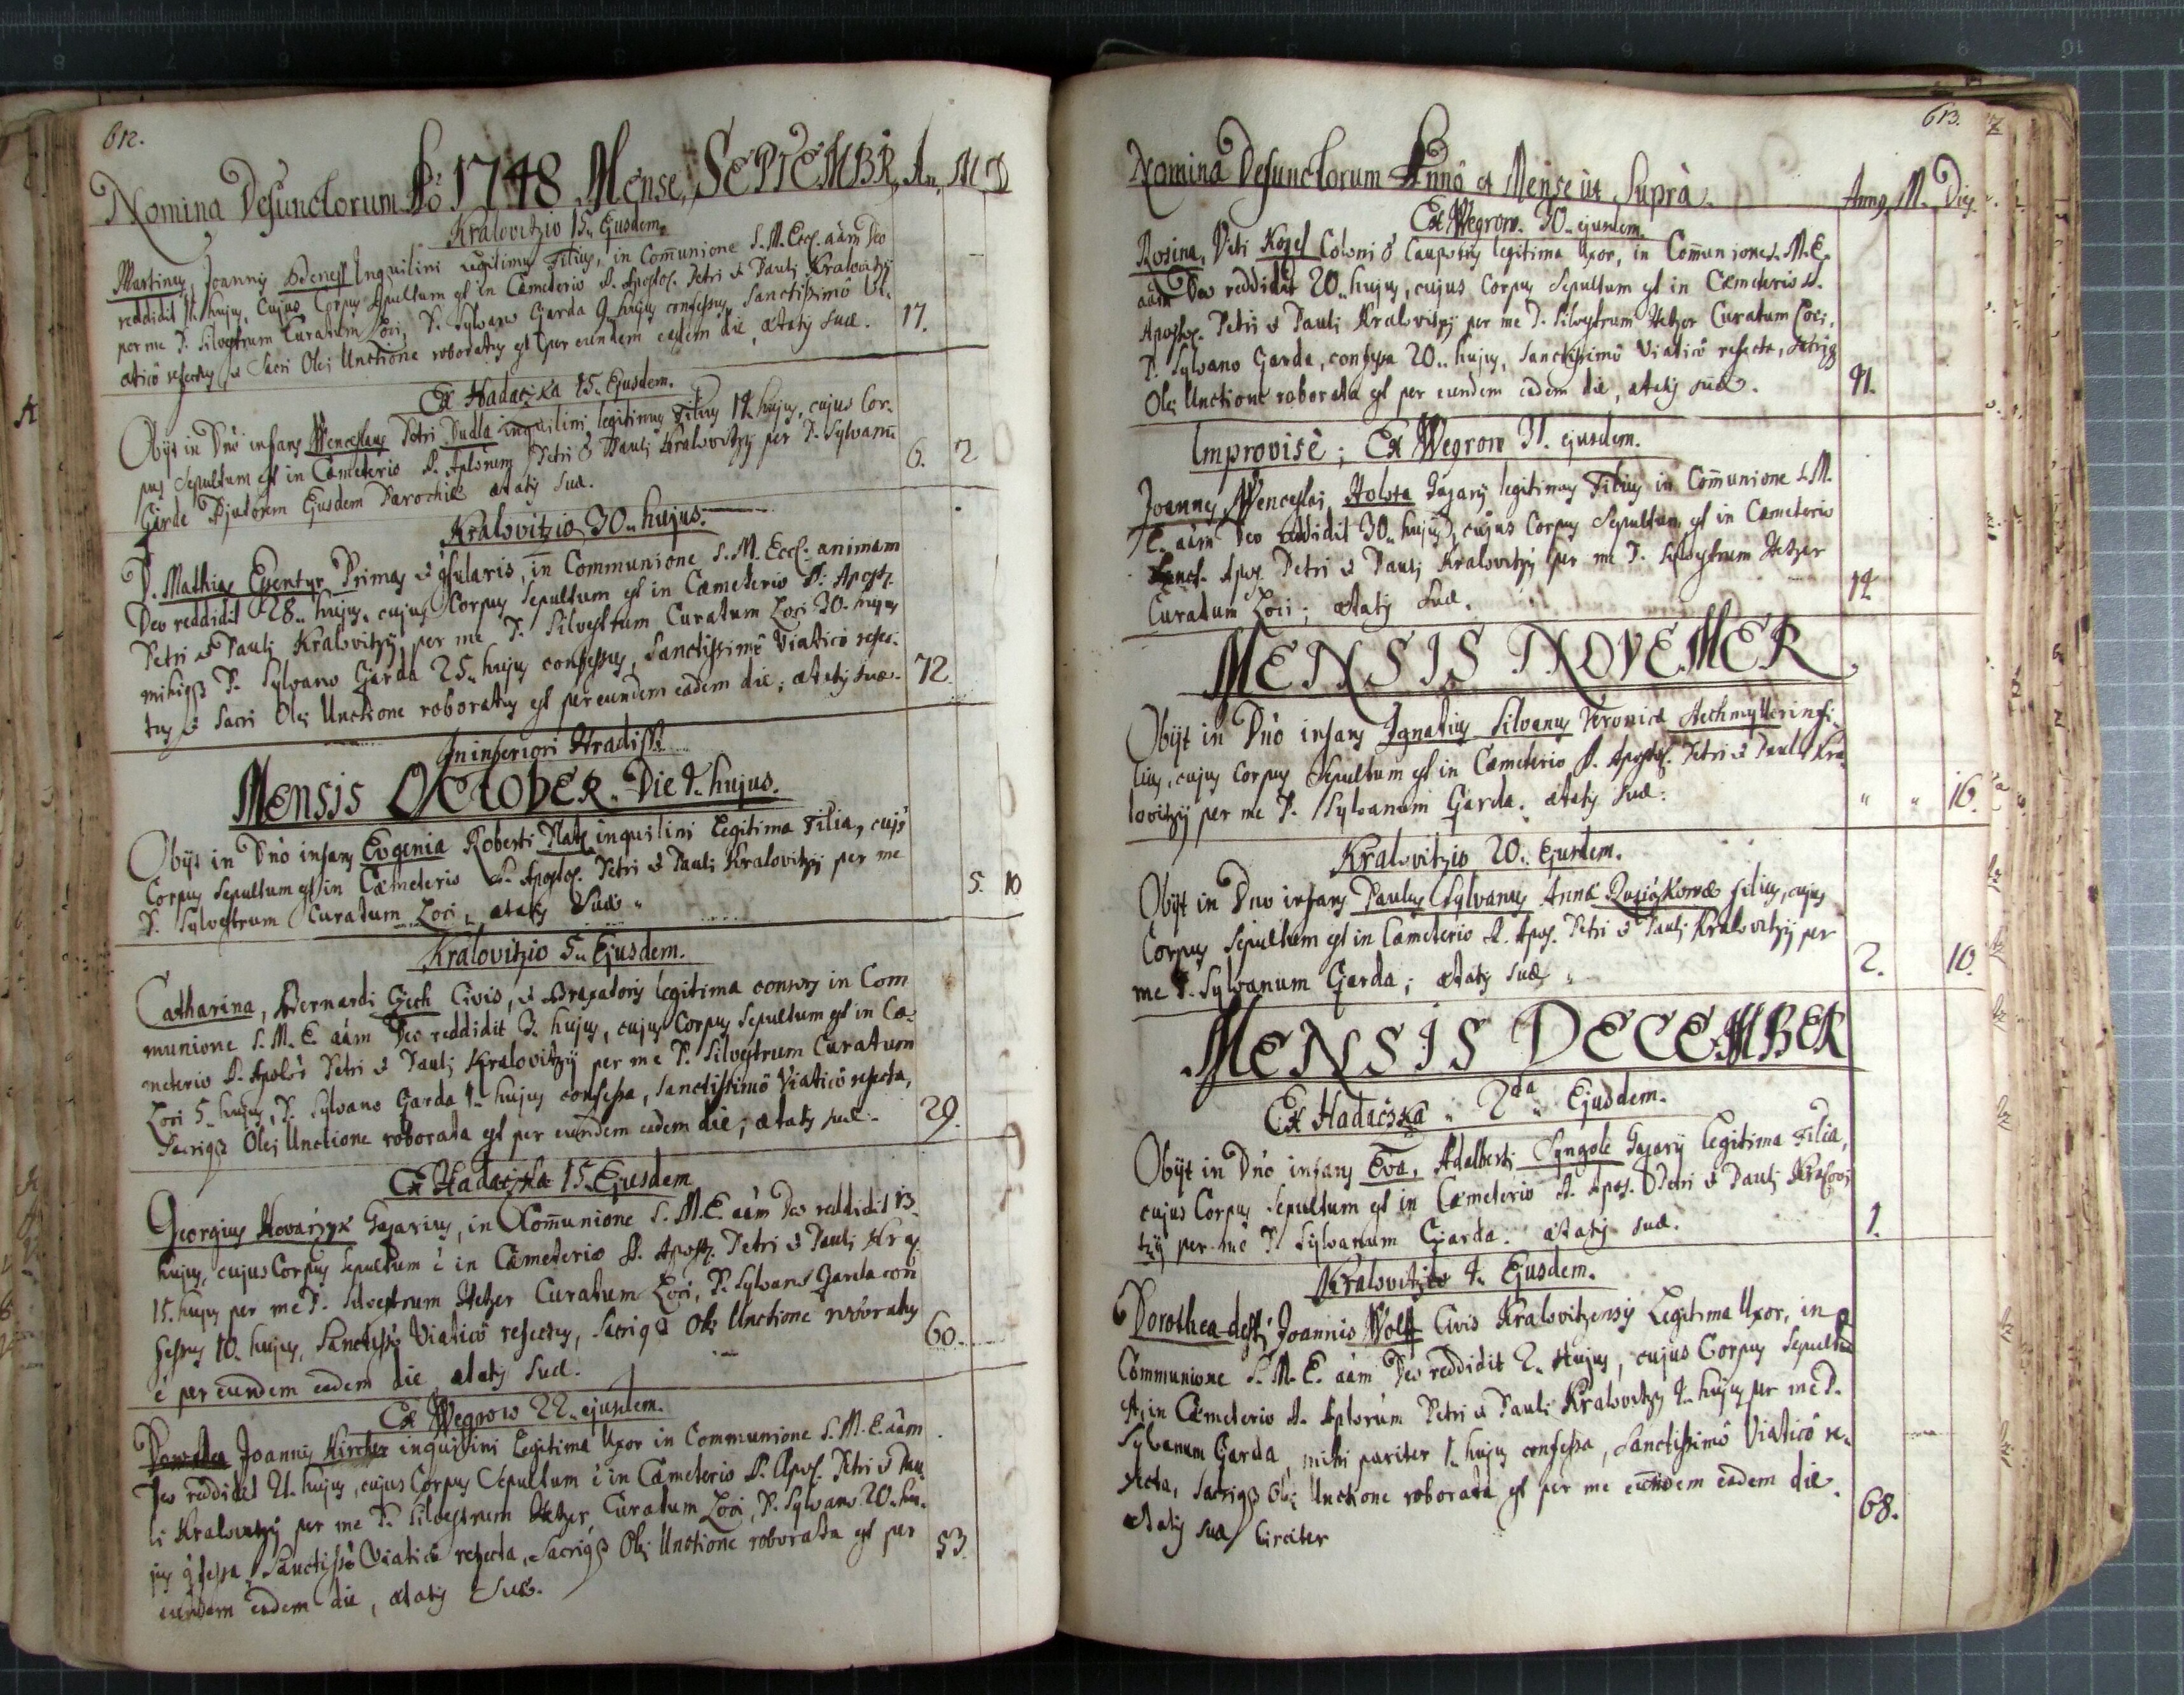 612.
Nomina Defunctorum Aõ 1748 Mense, SEPTEMBR, An, M D
Kralovitzio 15. Ejusdem.
Martinus, Joannis Beness Inquilini Legitimus Filius, in Com̃unione S. M. Eccl. aãm Deo
reddidit hujus, cujus Corpus Sepultum est in Cæmeterio S. Apostol. Petri & Pauli Kralovitzij
per me P. Silvestrum Curatum Loci, P. Sylvano Garda 9. hujus confessus, Sanctissimô Vi-
aticô refectus & Sacri Olei Unctione roboratus est per eundem eadem die, ætatis suæ. 17.
Ex Hadaczka 15. Ejusdem.
Obijt in Dnõ infans Wenceslaus Petri Dudla inquilini legitimus Filius 14. hujus, cujus Cor-
pus Sepultum est in Cæmeterio S. Aplorum Petri & Pauli Kralovitzij per P. Sylvanũ
Garde Adjutorem Ejusdem Parochiæ ætatis suæ. 6. 2
Kralovitzio 30. hujus.
D. Mathias Primas & in Communione S. M. Eccl. animam
Deo reddidit 28. hujus, cujus Corpus Sepultum est in Cæmeterio S. Apost.
Petri & Pauli Kralovitzij, per me P. Silvestrum Curatum Loci 30. hujus
P. Sylvano Garda 25. hujus confessus, Sanctissimô Viaticô refec-
tus & Sacri Olei Unctione roboratus est per eundem eadem die; ætatis suæ. 72.
In inferiori Hradisst.
Mensis OCTOBER. Die 4. hujus.
Obijt in Dnõ infans Evgenia Roberti Platz inquilini Legitima Filia, cujs
Corpus Sepultum est in Cæmeterio S. Apostol. Petri & Pauli Kralovitzij per me
P. Sylvestrum Curatum Loci, ætatis Suæ 5. 10
Kralovitzio 5. Ejusdem.
Catharina, Bernardi Czech Civis, & Braxatoris legitima consors in Com
munione S. M. E. aãm Deo reddidit 3. hujus, cujus Corpus Sepultum est in Cæ-
meterio S. Petri & Pauli Kralovitzij per me P. Silvestrum Curatum
Loci 5. hujus, P. Sylvano Garda 1. hujus confessa, Sanctissimô Viaticô refecta,
Sacriq Olei Unctione roborata est per eundem eadem die; ætatis suæ. 29.
Ex Hadaczka 15. Ejusdem
Georgius Kovarzyk Gazarius, in Com̃unione S. M. E. aãm Deo reddidit 13.
hujus, cujus Corpus Sepultum ẽ in Cæmeterio S. Apost. Petri & Pauli Kral.
15. hujus per me P. Silvestrum Hetzer Curatum Loci, P. Sylvano Garda con
fessus 10. hujus, Sanctissõ Viaticô refectus, Sacriq Olei Unctione roboratus
ẽ per eundem eadem die, ætatis Suæ. 60.
Ex Wegrow 22. ejusdem.
Dorothea Joannis Kircher inquilini Legitima Uxor in Communione S. M. E. aãm
Deo reddidit 21. hujus, cujus Corpus Sepultum ẽ in Cæmeterio S. Apos. Petri & Pau
li Kralovitzij per me P. Silvestrum Hetzer Curatum Loci, P. Sylvano 20. hu-
jus Sanctissõ Viaticô refecta, Sacriq Olei Unctione roborata est per
eundem eadem die, ætatis Suæ. 53.
613.
Nomina Defunctorum Annô et Mense ut Suprà. Annus M. Dies
Ex Wegrow. 30. ejusdem.
Rosina, Viti Kozel Coloni & Cauponis legitima Uxor, in Com̃unione S. M. E.
aãm Deo reddidit 20. hujus, cujus Corpus Sepultum est in Cæmeterio S.
Apostol. Petri & Pauli Kralovitzij per me P. Silvestrum Hetzer Curatum Loci,
P. Sylvano Garda, confessa 20. hujus, Sanctissimô Viaticô refecta, Sacriq
Olei Unctione roborata est per eundem eadem die, ætatis suæ. 41.
Improvisè; Ex Wegrow 31. ejusdem.
Joannes, Wenceslai Holota Gazarij legitimus Filius in Com̃unione S. M.
E. aãm Deo reddidit 30. hujus, cujus Corpus Sepultum est in Cæmeterio
Sanct. Apos. Petri & Pauli Kralovitzij per me P. Sylvestrum Hetzer
Curatum Loci; ætatis Suæ. 14
MENSIS NOVEMBER
Obijt in Dnõ infans Ignatius Silvanus Veronicæ Hechmyllerin fi-
lius, cujus Corpus Sepultum est in Cæmeterio S. Apostol. Petri & Pauli Kra-
lovitzij per me P. Sylvanum Garda. ætatis Suæ: " " 16.
Kralovitzio 20. Ejusdem.
Obijt in Dno infans Paulus Sylvanus Annæ filius, cujus
Corpus Sepultum est in Cæmeterio S. Apos. Petri & Pauli Kralovitzij per
me P. Sylvanum Garda; ætatis suæ 2. 10.
MENSIS DECEMBER
Ex Hadačzka 2da Ejusdem.
Obijt in Dnõ infans Eva, Adalberti Syngole Gazarij legitima Filia,
cujus Corpus Sepultum est in Cæmeterio S. Apos. Petri & Pauli Kralovi
tzij per me P. Sylvanum Garda. ætatis suæ. 1.
Kralovitzio 4. Ejusdem.
Dorothea desti Joannis Wolff Civis Kralovitzensis Legitima Uxor, in
Communione S. M. E. aãm Deo reddidit 2. Hujus, cujus Corpus Sepultũ
in Cæmeterio S. Aplorum Petri & Pauli Kralovitzij 4. hujus per me P.
Sylvanum Garda, mihi pariter 1. hujus confessa, Sanctissimô Viaticô re-
fecta, Sacriq Olei Unctione roborata est per me eundem eadem die.
ætatis suæ Circiter 68.